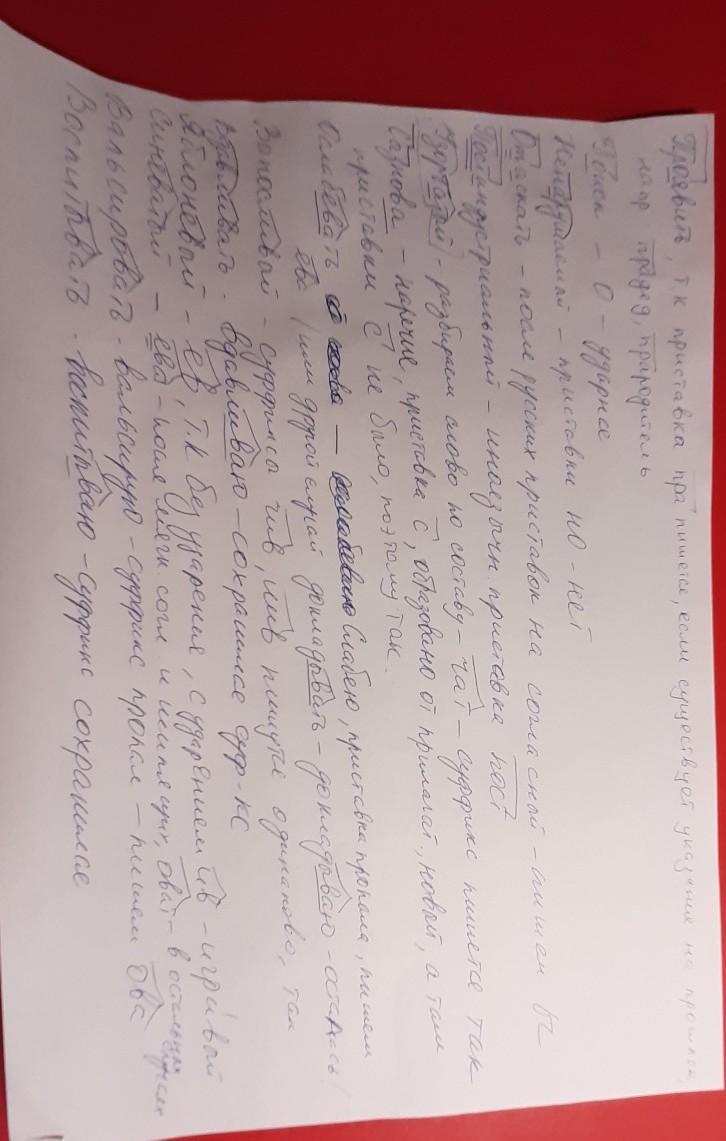 Проявить, т.к приставка пра пишется, если существует указание на прошлое,
напр прадед, прародитель
Поиск - О - ударное
Ненарушаемый - приставки но - нет
Отыскать - после русских приставок на согласный - пишем Ы
Постиндустриальный - иноязычн. приставка пост
Бортатый - разбираем слово по составу - чат - суффикс пишется так
Сызнова - наречие, приставка с, образовано от прилагат., новый, а там
приставки с не было, поэтому так.
Ослабевать - слабею, приставка пропала, пишем
ева (или другой случай докладывать - докладываю - осталась)
суффиксы чив, лив пишутся одинаково, так
Вдавливать - вдавливаю - сохранился суф-кс
Яблоневый - ев, т.к без ударения, с ударением ив - игривый
Синеватый - ева - после мягк. согл и шипящих, оват - в остальных случаях
Вальсировать - вальсирую - суффикс пропал - пишем ова
Воспитывать - воспитываю - суффикс сохранился